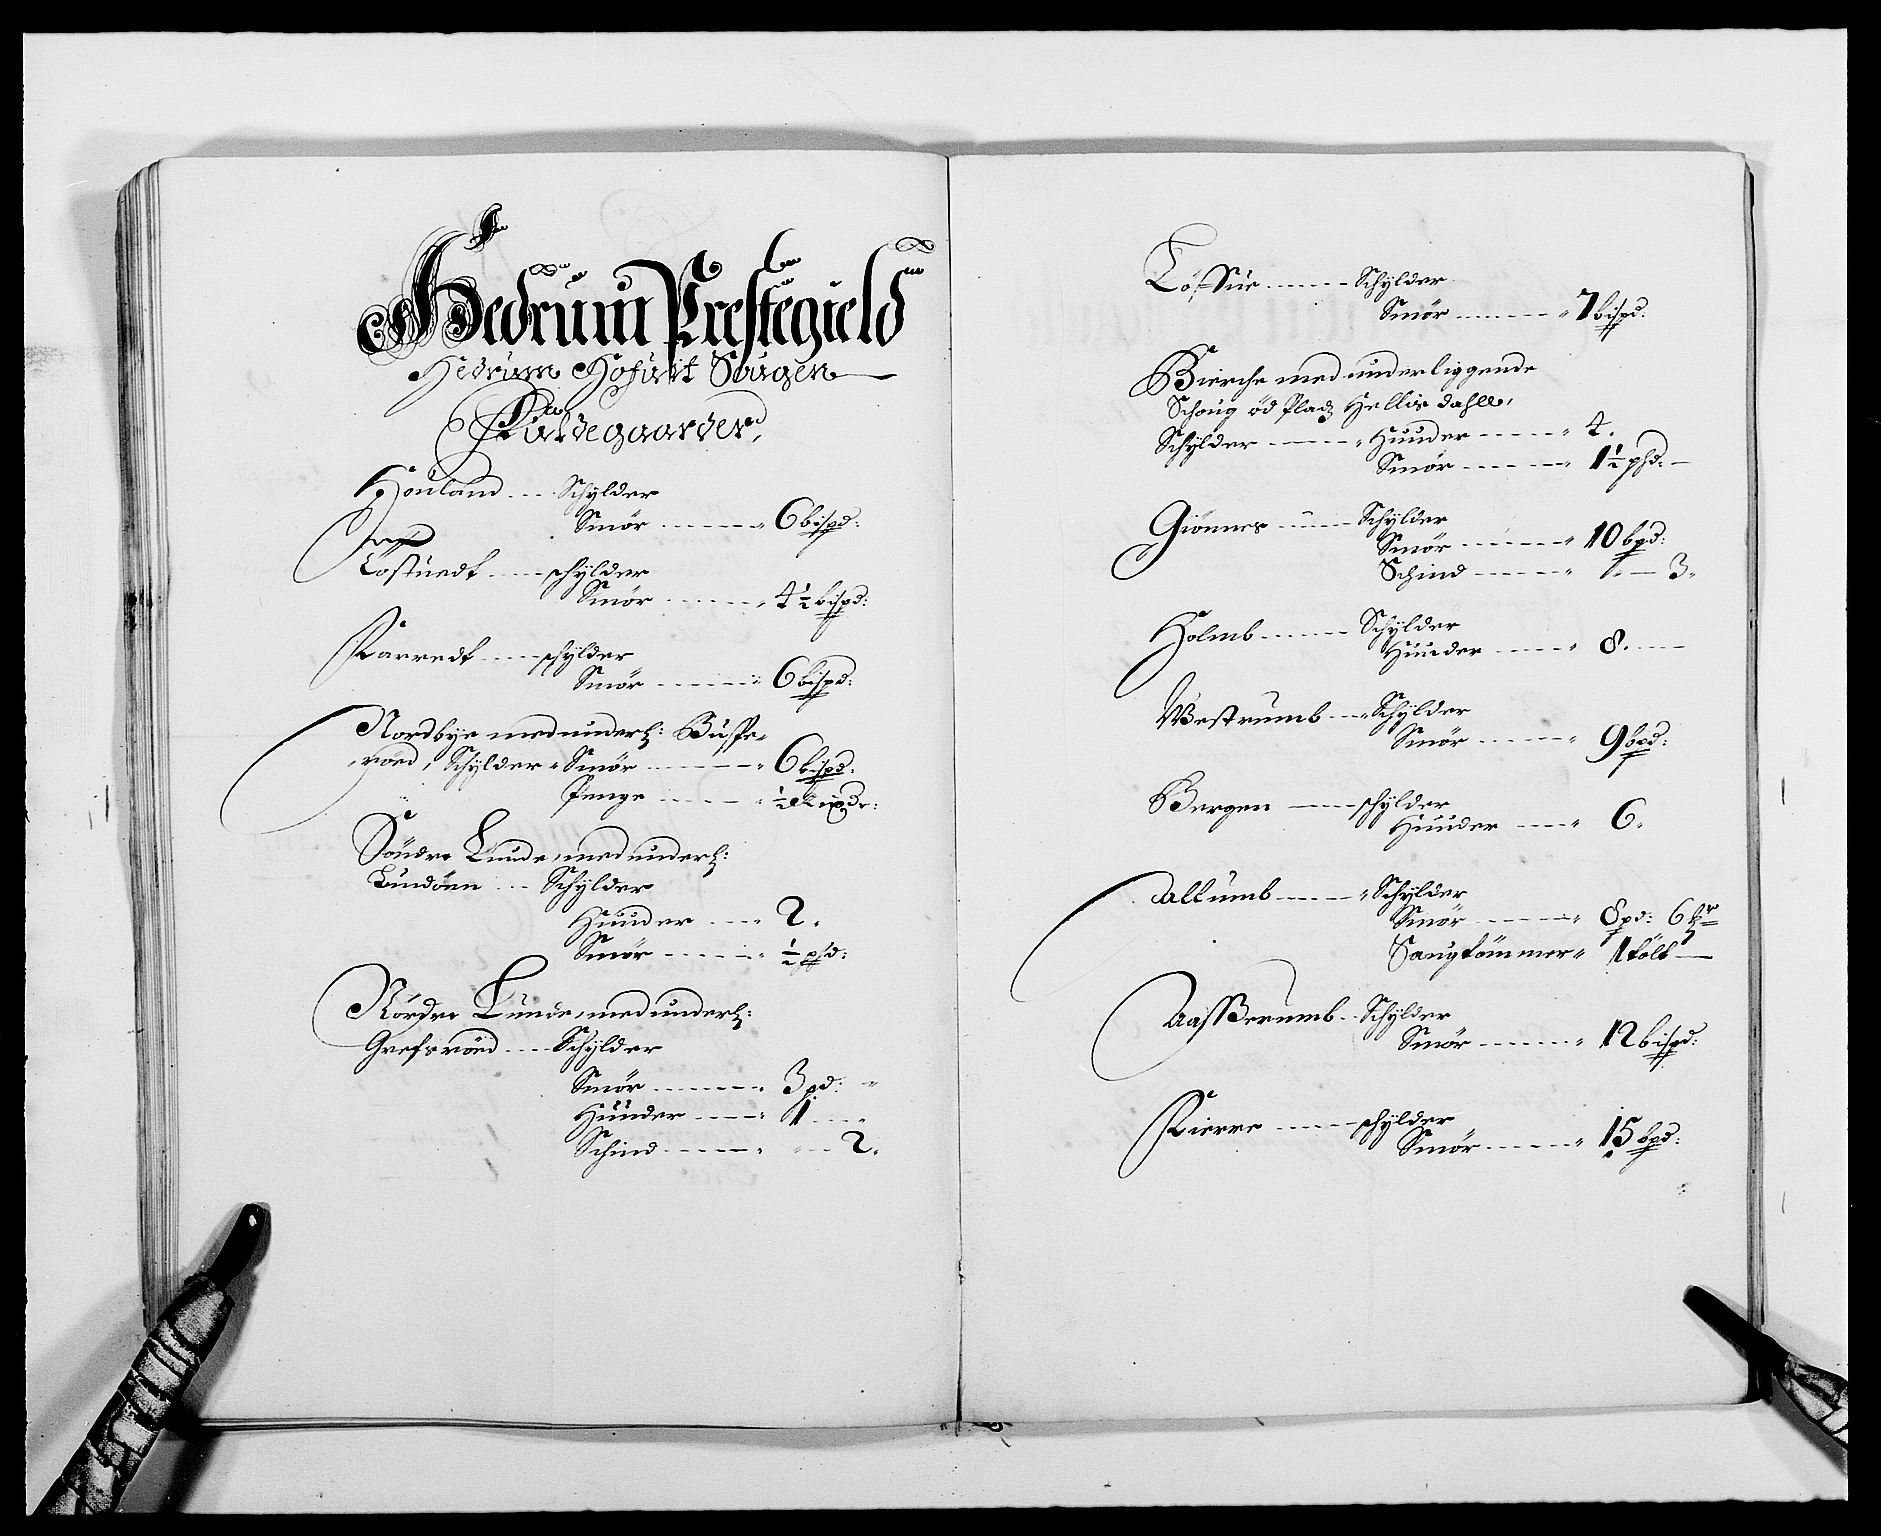 Hedrum Prestegield
Hedrum Hofuit Sougen
Fuldegaarder,
Houland ... Schylder
Smör ------- 6 bispd:
Löstuedt ---- schylder
Smör ------- 4½ bispd:
Farredt ---- schylder
Smör ------- 6 bispd:
Nordbye med underl: Busse-
röed, Schylder Smör ------- 6 bispd:
Penge ------ ½ Rixdr:
Söndre Lunde, med underl:
Lundöen ... Schylder
Huuder ---- 2.
Smör ------- ½ pfd:
Nördre Lunde, med underl:
Grefsröed .... Schylder
Smör ------- 3 pd:
Huuder ---- 1
Schind ------- 2.
Schylder
Smör ------- 7 bispd:
Bierche med underliggende
Schoug öd Pladz Hellisdahll,
Schylder ------ Huuder ------ 4.
Smör ------- 1½ pfd: -
Giönnes ------ Schylder
Smör ------- 10 bpd:
Schind ------- 3.
Holmb ------ Schylder
Huuder ----- 8.
Westrumb --- Schylder
Smör ------ 9 bpd:
Bergen ---- schylder
Huuder ---- 6.
Allumb ----- Schylder
Smör ------ 8 pd: 6
Saugtömmer 1 tölt -
Aassserumb .. Schylder
Smör ------ 12 bispd:
Kierre ----- schylder
Smör ------ 15 bpd: